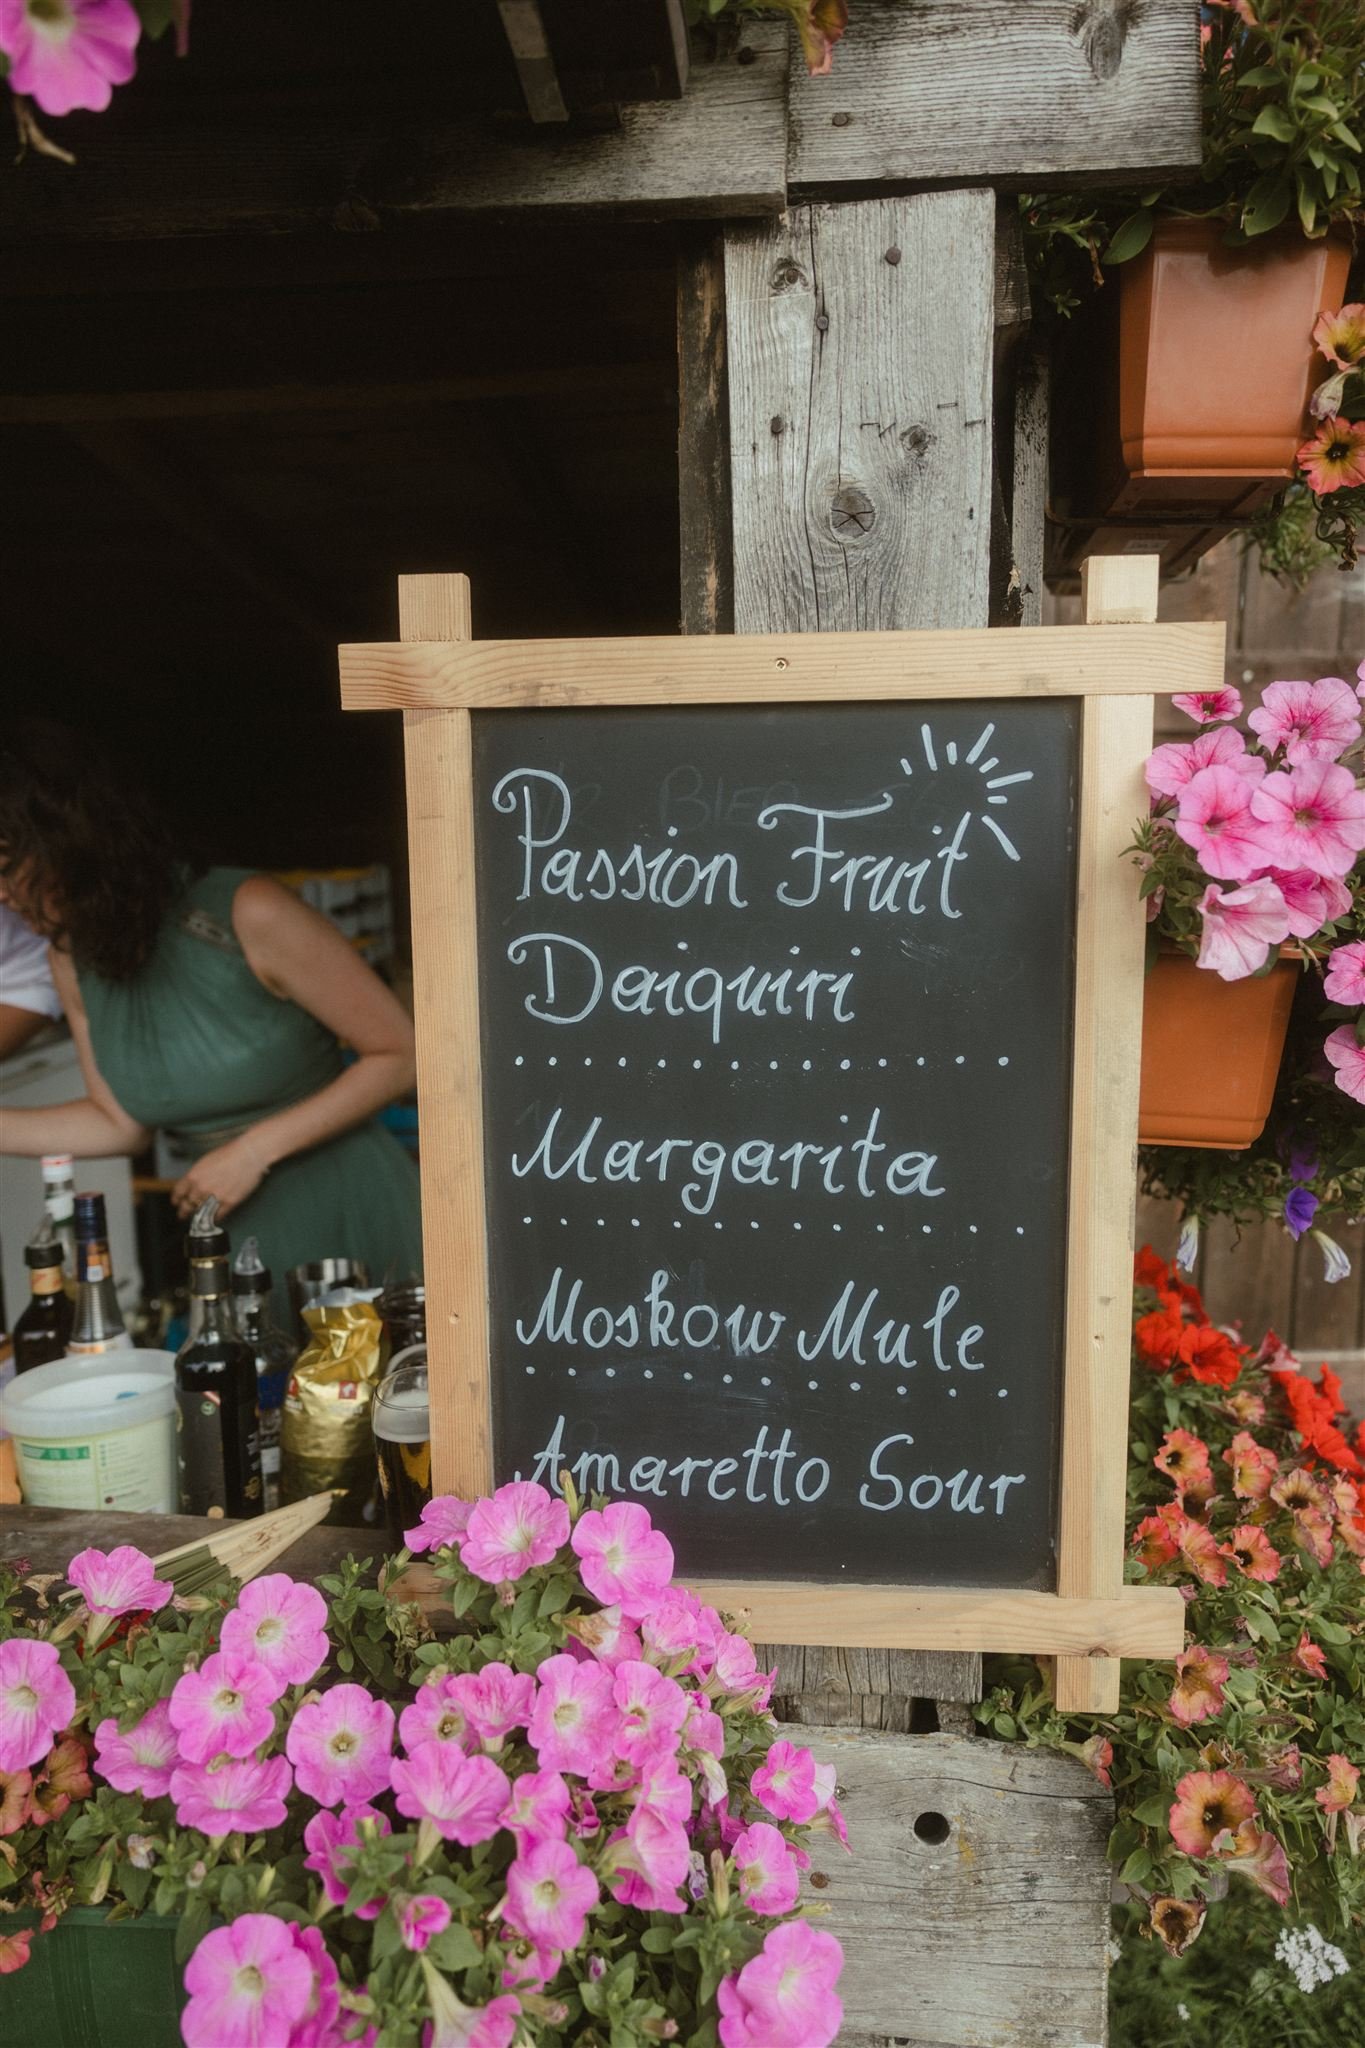 Passion Fruit
Daiquiri
Margarita
Moskow Mule
Amaretto Sour